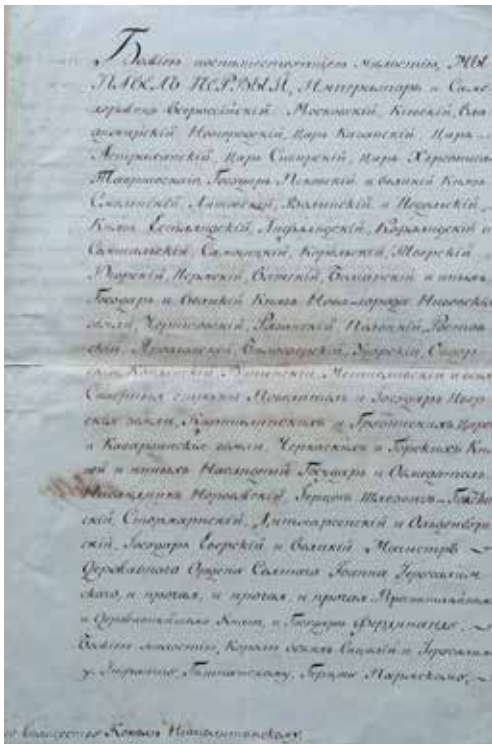 Божіею поспешествующею милостію, МЫ
ПАВЕЛЪ ПЕРВЫЙ, Императоръ и Само
держецъ Всероссійскій, Московскій, Кіевскій, Вла
димирскій Новгородскій, Царь Казанскій, Царь
Астраханскій, Царь Сибирскій, Царь Херсониса
Таврическаго, Государь Псковскій и Великій Князь
Смоленскій, Литовскій, Волынскій и Подольскій
Князь Эстляндскій, Лифляндскій, Курляндскій и
Семигальскій, Самогицкій, Корельскій, Тверскій
Югорскій, Пермскій, Вятскій, Болгарскій и иныхъ
Государь и Великій Князь Новагорода Низовскія
земли, Черниговскій, Рязанскій, Полоцкій, Ростов
скій, Ярославскій, Белоозерскій, Удорскій, Обдор
скій, Кондійскій, Витебскій, Мстиславскій и всея
Северныя страны Повелитель и Государь Ивер
скія земли, Карталинскихъ и Грузинскихъ Царей
и Кабардинскія земли, Черкаскихъ и Горскихъ Кня
зей и иныхъ Наследный Государь и Обладатель
Наследникъ Норвежскій, Герцогъ Шлезвигъ-Голстин
скій, Стормарнскій, Дитмарсенскій и Олденбург
скій, Государь Еверскій и Великій Магистръ
Державнаго Ордена Святаго Іоанна Іерусалим
скаго, и прочая, и прочая, и прочая. Пресветлейшему
и Державнейшему Князю, и Государю Фердинанду
Божіею милостію, Королю обеихъ Сицилій и Іерусалим
у, Инфанту Гишпанскому, Герцогу Пармскому,
Его Величеству Королю Неаполитанскому